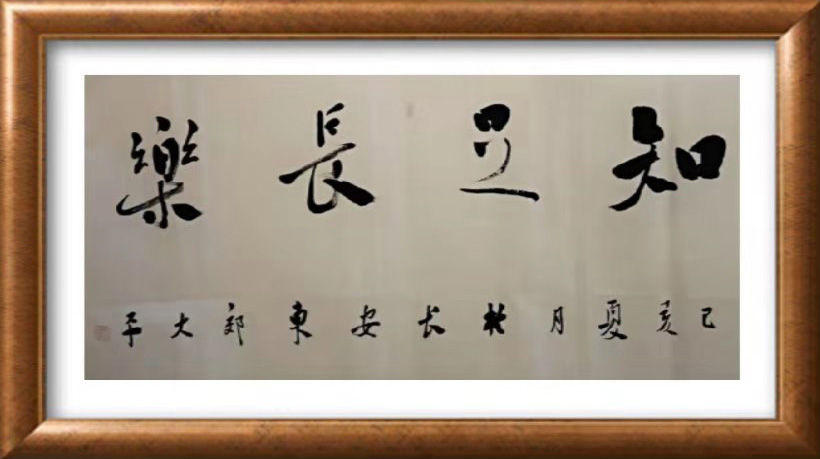 知足長樂
己亥夏月於长安東郭大平